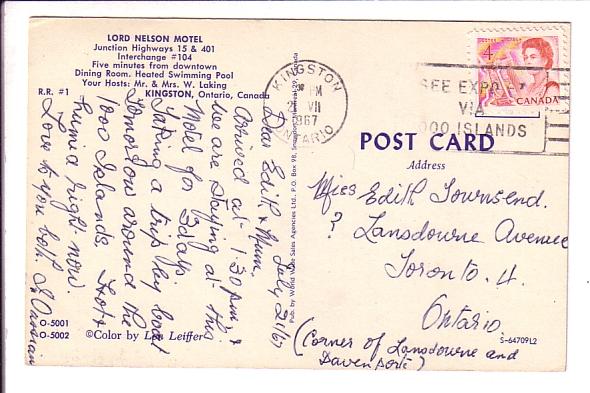 LORD NELSON MOTEL
Junction Highways 15 & 401
Interchange #104
Five minutes from downtown
Dining Room. Heated Swimming Pool
Your Hosts: Mr. & Mrs. W. Laking
R.R. #1 KINGSTON, Ontario, Canada
July 21/67
Dear Edith & Mum,
Arrived at 1-30 pm &
we are staying at this
Motel for 3 days
Taking a trip by boat
Tomorrow around the
1000 Islands. Hot &
humid right now
Love to you both
O-5001
O-5002
©Color by Leo Leiffer
Pub. by World Wide Sales Agencies Ltd., P.O. Box 98, Canada
KINGSTON
PM
VII
1967
ONTARIO
SEE EXPO
VIA
1000 ISLANDS
4
CANADA
POST CARD
Address
Miss Edith Townsend.
? Lansdowne Avenue
Toronto. 4.
Ontario
S-64709L2
(Corner of Lansdowne and
Davenport)